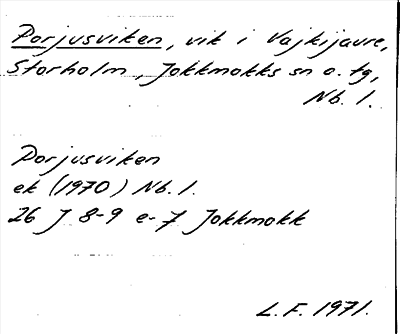 Porjusviken, vik i Vajkijaure,
Storholm, Jokkmokks sn o. tg,
Nb. l.
Porjusviken
ek (1970) Nb. l.
26 J 8-9 e-7 Jokkmokk
L.F. 1971.